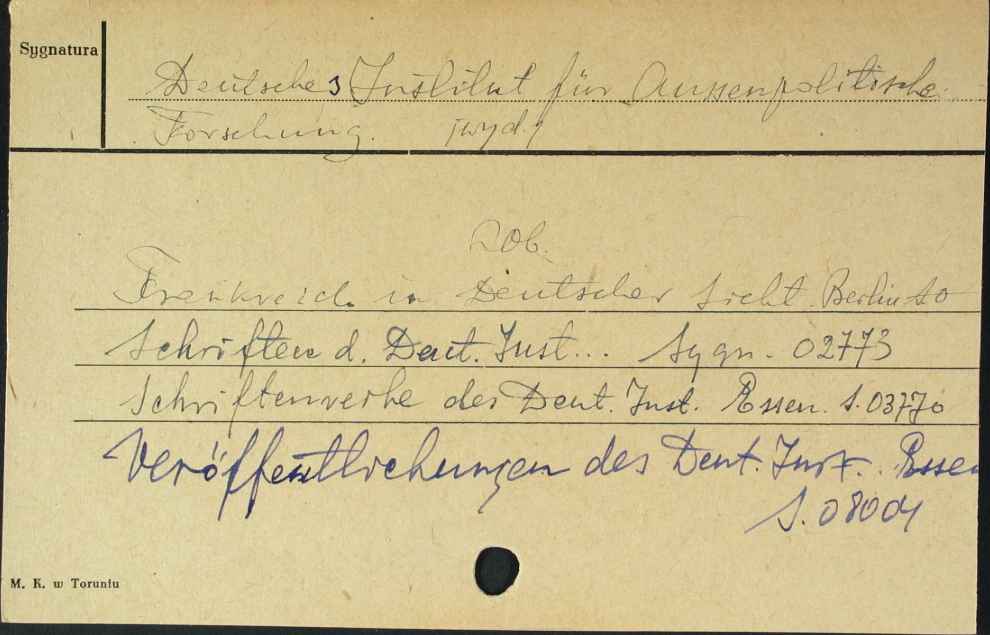 Sygnatura
Deutsches Institut für Aussenpolitische
Forschung. /wyd./
Zob.
Frankreich in Deutscher Sicht. Berlin
Schriften d. Deut. Inst... Sygn. 02773
Schriftenreihe des Deut. Inst. Essen. S. 03770
Veröffentlichungen des Deut. Inst. Essen
S. 08004
M. K. w Toruniu